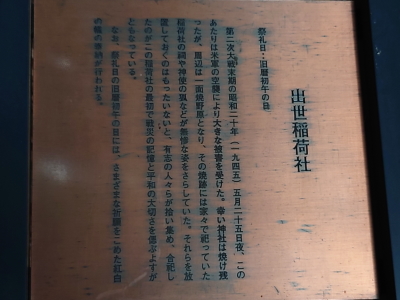 出世稲荷社
祭礼日・旧暦初午の日
第二次大戦末期の昭和二十年（一九四五）五月二十五日夜、この
あたりは米軍の空襲により大きな被害を受けた。幸い神社は焼け残
ったが、周辺は一面焼野原となり、その焼跡には家々で祀っていた
稲荷社の祠や神使の狐などが無惨な姿をさらしていた。それらを放
置しておくのはもったいないと、有志の人々らが拾い集め、合祀し
たのがこの稲荷社の最初で戦災の記憶と平和の大切さを偲ぶよすが
ともなっている。
なお、祭礼日の旧暦初午の日には、さまざまな祈願をこめた紅白
の幟の奉納が行われる。